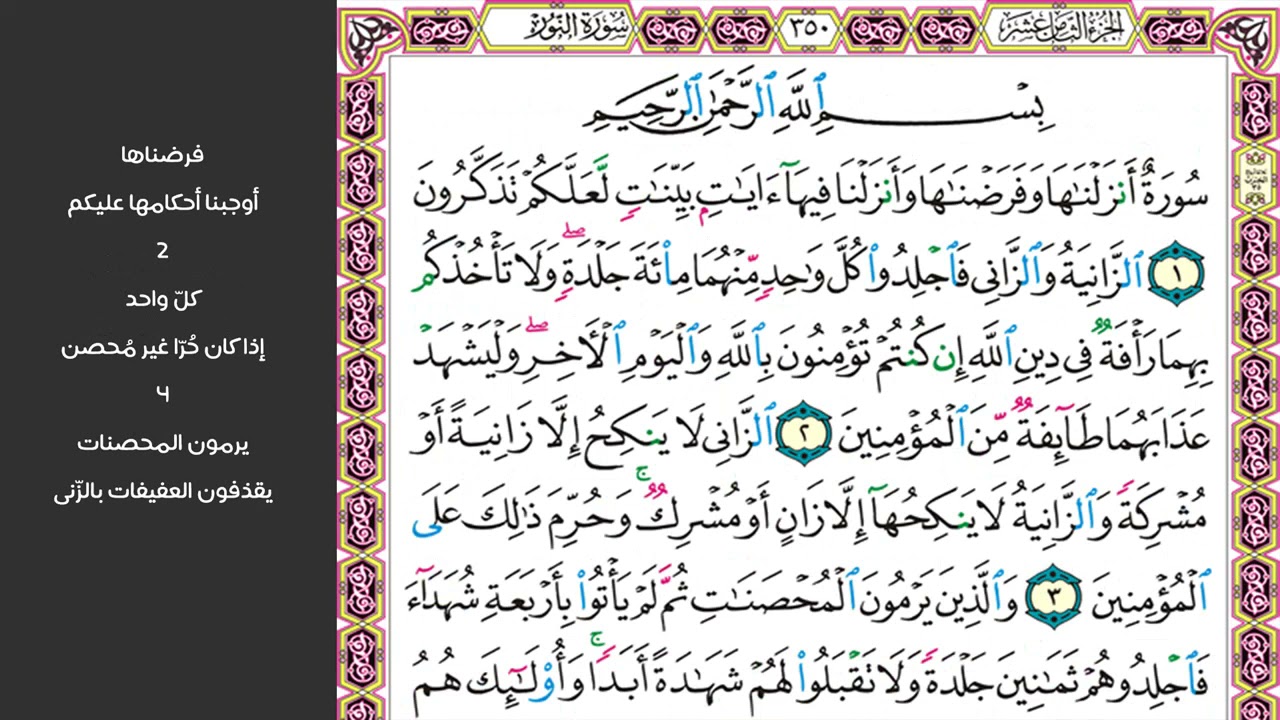 الجزء الثامن عشر
٣٥٠
سورة النور
بِسْمِ ٱللَّهِ ٱلرَّحْمَٰنِ ٱلرَّحِيمِ
سُورَةٌ أَنزَلْنَٰهَا وَفَرَضْنَٰهَا وَأَنزَلْنَا فِيهَآ ءَايَٰتٍۭ بَيِّنَٰتٍ لَّعَلَّكُمْ تَذَكَّرُونَ
١ ٱلزَّانِيَةُ وَٱلزَّانِى فَٱجْلِدُوا۟ كُلَّ وَٰحِدٍ مِّنْهُمَا مِا۟ئَةَ جَلْدَةٍ ۖ وَلَا تَأْخُذْكُم
بِهِمَا رَأْفَةٌ فِى دِينِ ٱللَّهِ إِن كُنتُمْ تُؤْمِنُونَ بِٱللَّهِ وَٱلْيَوْمِ ٱلْـَٔاخِرِ ۖ وَلْيَشْهَدْ
عَذَابَهُمَا طَآئِفَةٌ مِّنَ ٱلْمُؤْمِنِينَ ٢ ٱلزَّانِى لَا يَنكِحُ إِلَّا زَانِيَةً أَوْ
مُشْرِكَةً وَٱلزَّانِيَةُ لَا يَنكِحُهَآ إِلَّا زَانٍ أَوْ مُشْرِكٌ ۚ وَحُرِّمَ ذَٰلِكَ عَلَى
ٱلْمُؤْمِنِينَ ٣ وَٱلَّذِينَ يَرْمُونَ ٱلْمُحْصَنَٰتِ ثُمَّ لَمْ يَأْتُوا۟ بِأَرْبَعَةِ شُهَدَآءَ
فَٱجْلِدُوهُمْ ثَمَٰنِينَ جَلْدَةً وَلَا تَقْبَلُوا۟ لَهُمْ شَهَٰدَةً أَبَدًا ۚ وَأُو۟لَٰٓئِكَ هُمُ
فرضناها
أوجبنا أحكامها عليكم
2
كلّ واحد
إذا كان حُرّا غير مُحصن
۴
يرمون المحصنات
يقذفون العفيفات بالزّنى